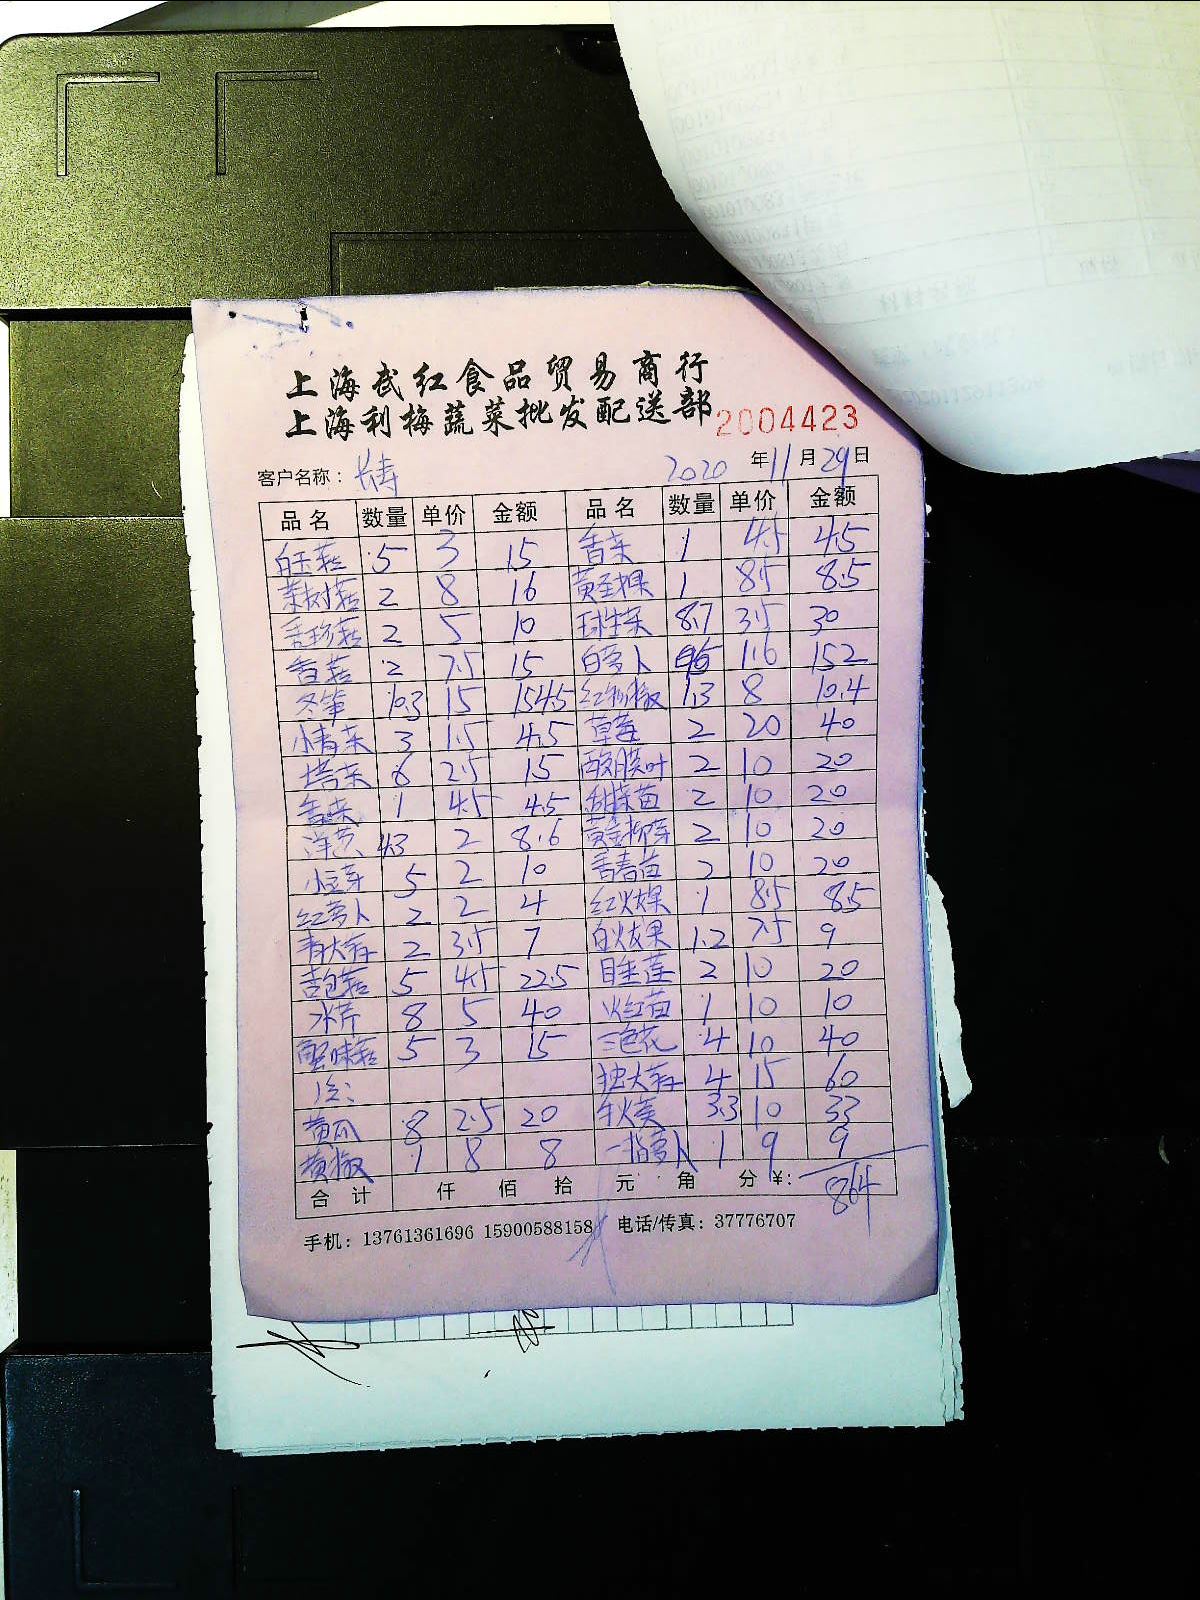 上海武红食品贸易商行
上海利梅蔬菜批发配送部 2004423
客户名称： 长寿 2020 年 11 月 29 日
品名 数量 单价 金额 品名 数量 单价 金额
白玉菇 5 3 15 香菜 1 4.5 4.5
茶树菇 2 8 16 黄圣果 1 8.5 8.5
秀珍菇 2 5 10 球生菜 8.7 3.5 30
香菇 2 7.5 15 白萝卜 9.5 1.6 15.2
冬笋 10.3 15 154.5 红椒 1.3 8 10.4
小青菜 3 1.5 4.5 草莓 2 20 40
塔菜 6 2.5 15 酸膜叶 2 10 20
香菜 1 4.5 4.5 甜菜苗 2 10 20
洋葱 4.3 2 8.6 黄金柳芽 2 10 20
小豆芽 5 2 10 香春苗 2 10 20
红萝卜 2 2 4 红火龙果 1 8.5 8.5
青大蒜 2 3.5 7 白火龙果 1.2 7.5 9
杏鲍菇 5 4.5 22.5 睡莲 2 10 20
水芹 8 5 40 火红苗 1 10 10
蟹味菇 5 3 15 三色花 4 10 40
独大蒜 4 15 60
黄瓜 8 2.5 20 3.3 10 33
黄椒 1 8 8 一指萝卜 1 9 9
合计 仟 佰 拾 元 角 分 ¥： 864
手机：13761361696 15900588158 电话/传真：37776707